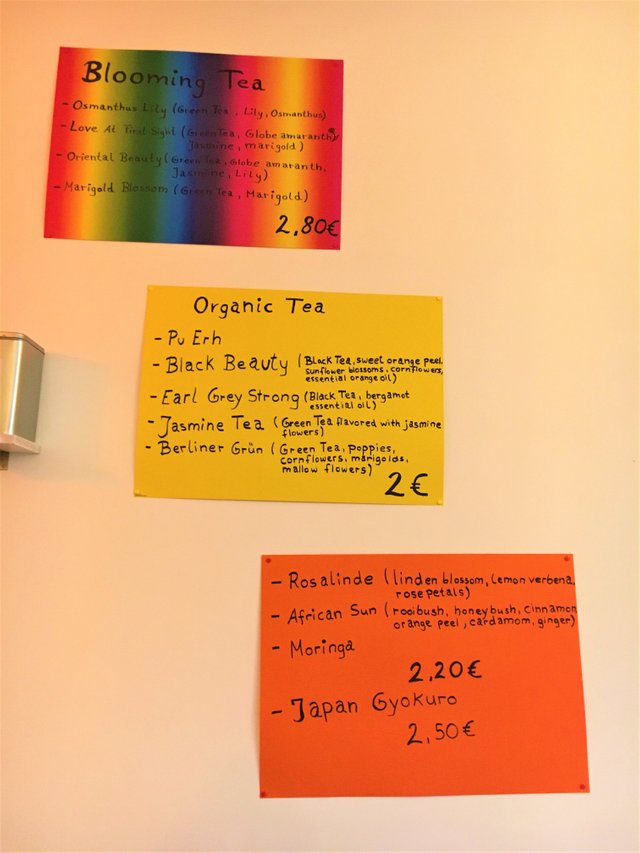 Blooming Tea
- Osmanthus Lily (Green Tea, Lily, Osmanthus)
- Love At First Sight (Green Tea, Globe amaranth,
Jasmine, marigold)
- Oriental Beauty (Green Tea, Globe amaranth,
Jasmine, Lily)
- Marigold Blossom (Green Tea, Marigold)
2,80€
Organic Tea
- Pu Erh
- Black Beauty (Black Tea, sweet orange peel,
sunflower blossoms, cornflowers,
essential orange oil)
- Earl Grey Strong (Black Tea, bergamot
essential oil)
- Jasmine Tea (Green Tea flavored with jasmine
flowers)
- Berliner Grün (Green Tea, poppies,
cornflowers, marigolds,
mallow flowers)
2€
- Rosalinde (linden blossom, Lemon verbena,
rose petals)
- African Sun (rooibush, honeybush, cinnamon,
orange peel, cardamom, ginger)
- Moringa
2,20€
- Japan Gyokuro
2,50€